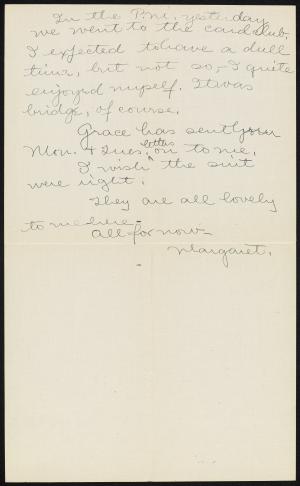 In the P.M. yesterday
we went to the card club.
I expected to have a dull
time, but not so, - I quite
enjoyed myself. It was
bridge, of course.
Grace has sent your
Mon. & Tues. letters on to me.
I wish the suit
were right.
They are all lovely
to me here -
All for now -
Margaret.